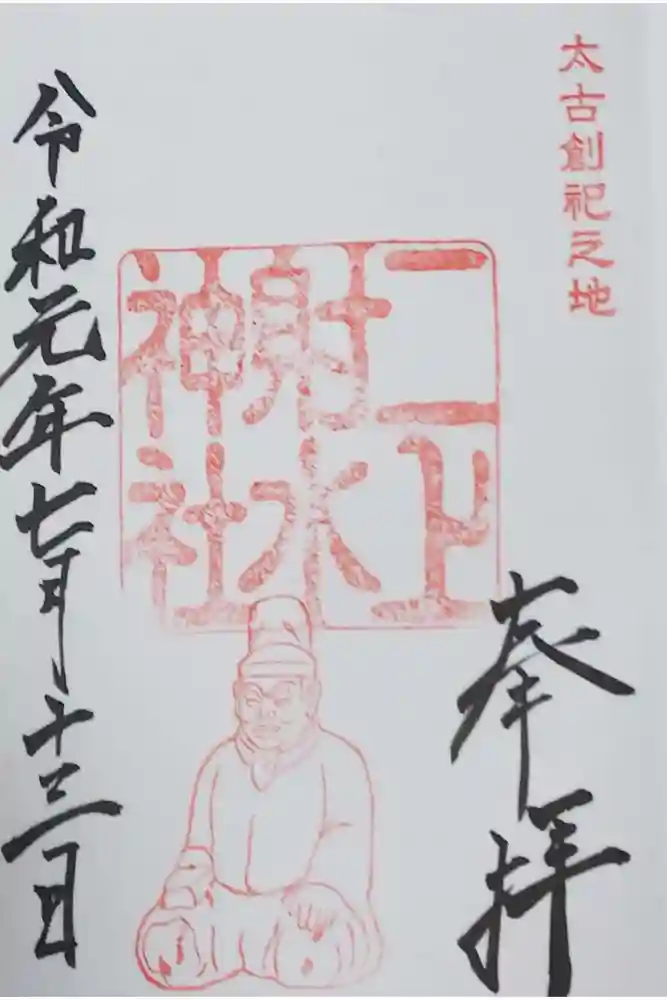 太古創祀之地
奉拝
二上
射水
神社
令和元年七月十三日